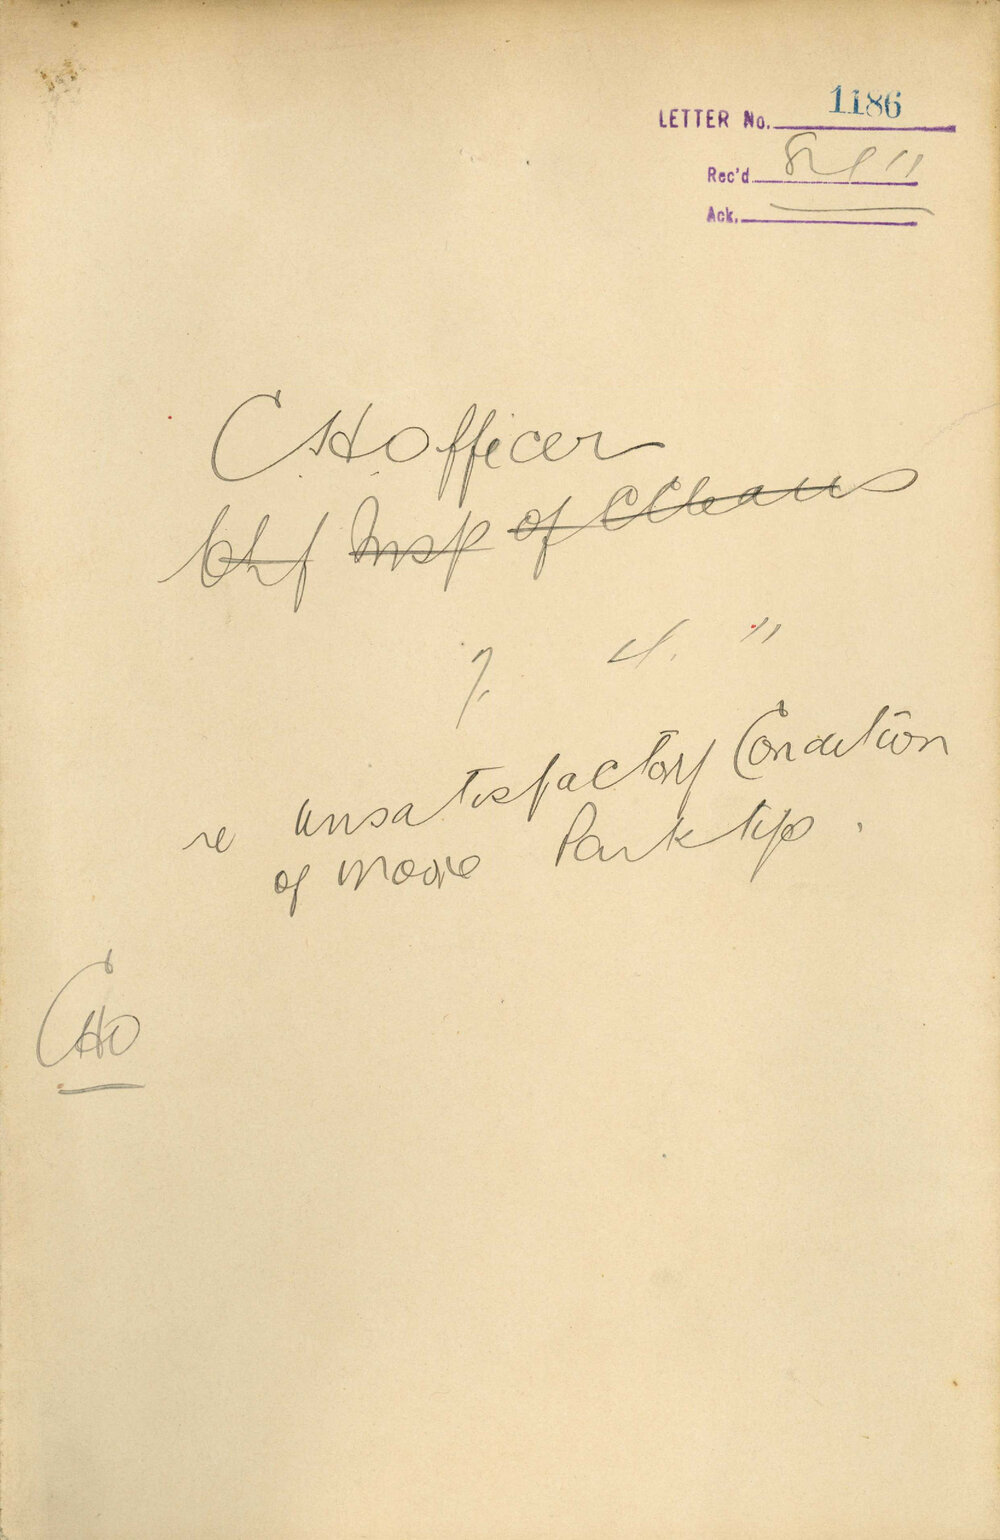 LETTER No. 1186
Rec'd 8 4 11
Ack.
C H Officer
Chf Insp of Cleans
7. 4. 11
re unsatisfactory Condition
of Moore Park tip.
CHO